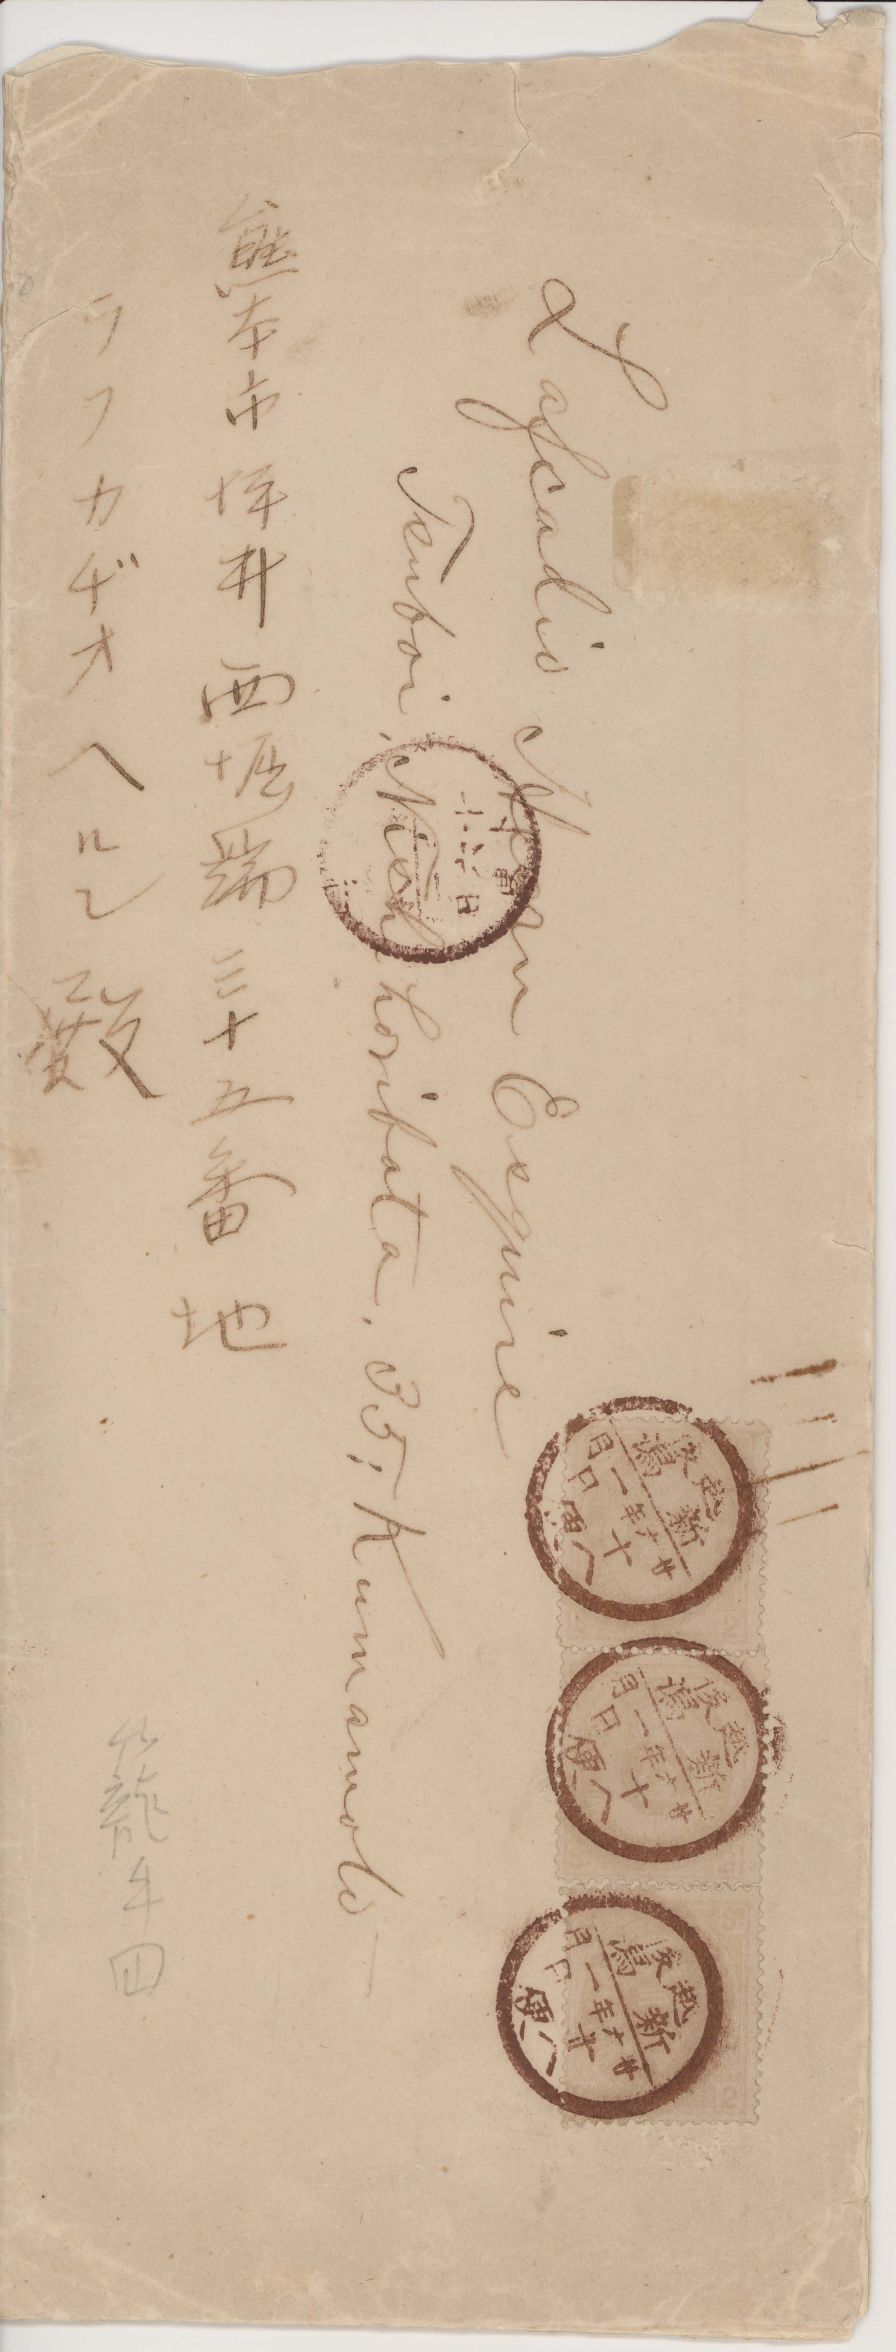 Lafcadio Hearn Esquire
Tsuboi, Nishihoribata, 35, Kumamoto
熊本市坪井西堀端三十五番地
ラフカヂオヘルン殿
越後
新潟
廿六年
十一月
日
八便
越後
新潟
廿六年
十一月
日
八便
越後
新潟
廿六年
十一月
日
八便